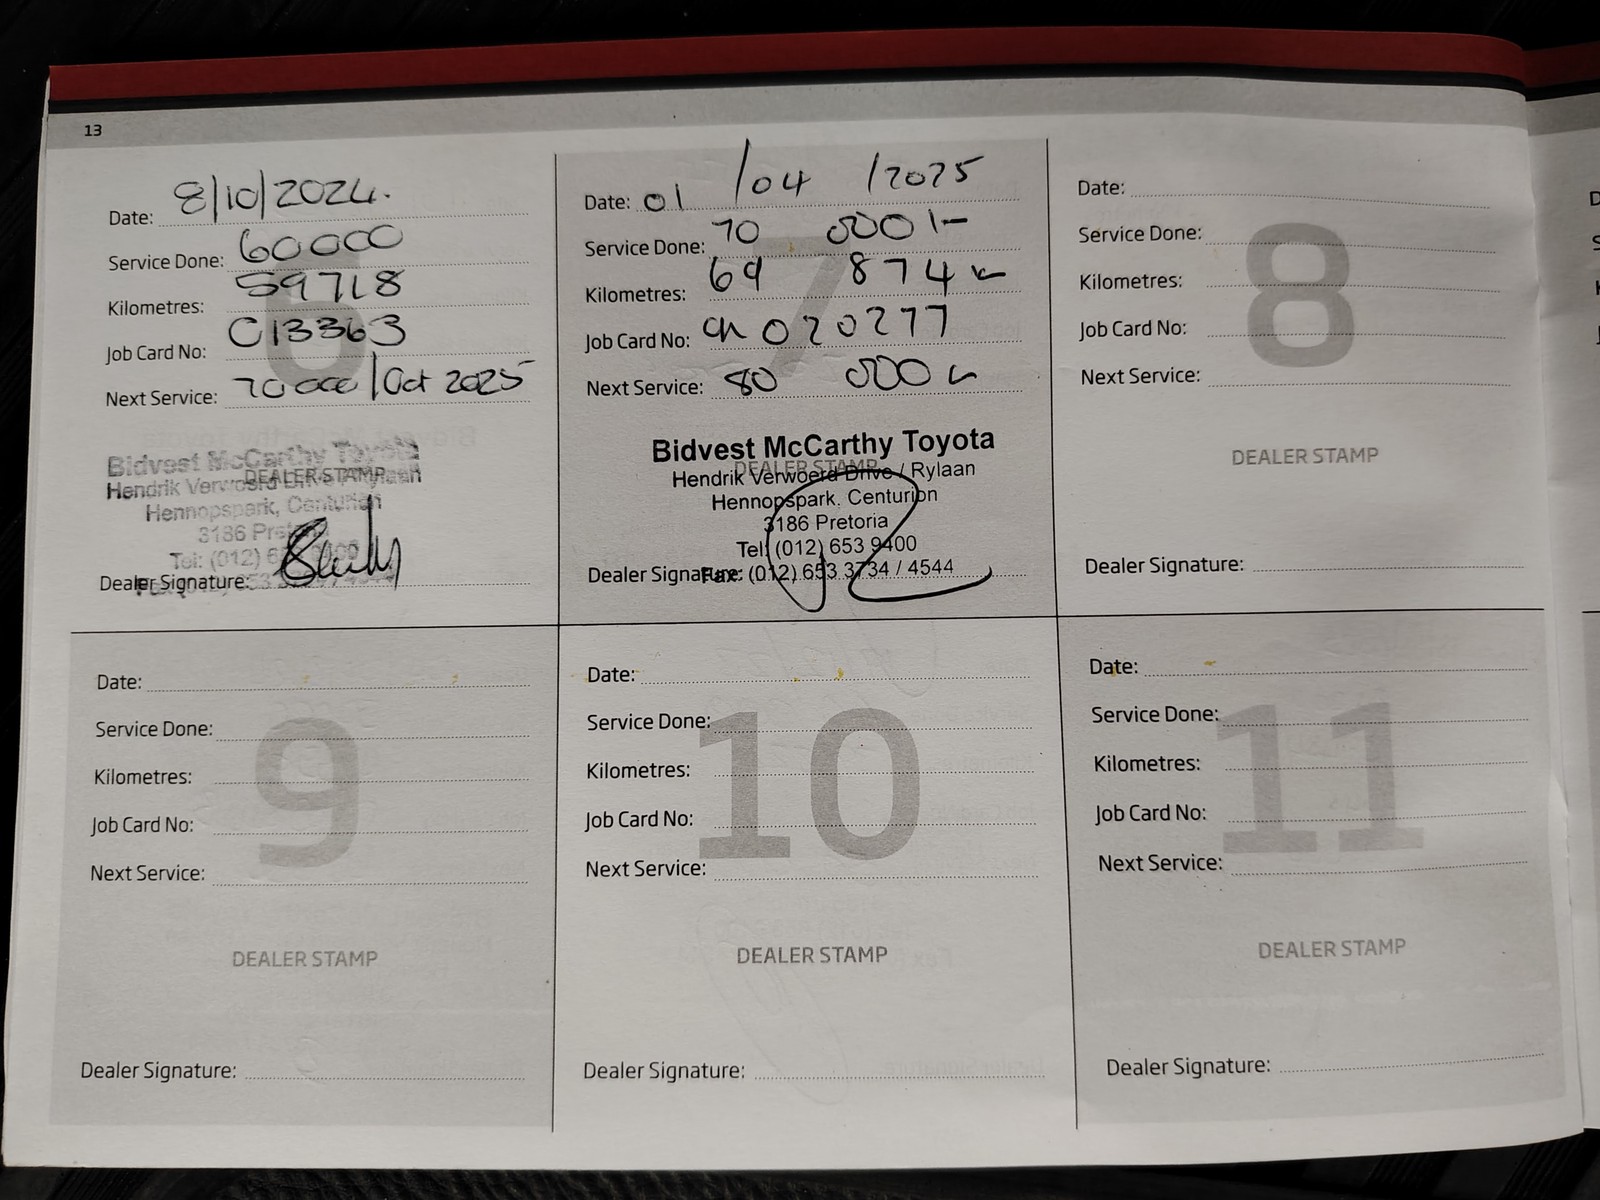 13
Date: 8/10/2024.
Service Done: 60000
Kilometres: 59718
Job Card No: C13363
Next Service: 70000/Oct 2025
Bidvest McCarthy Toyota
DEALER STAMP
Hendrik Verwoerd Drive / Rylaan
Hennopspark, Centurion
3186 Pretoria
Tel: (012) 653 9400
Dealer Signature:
6
Date: 01/04/2025
Service Done: 70 000
Kilometres: 69 874
Job Card No: 020277
Next Service: 80 000
7
Bidvest McCarthy Toyota
DEALER STAMP
Hendrik Verwoerd Drive / Rylaan
Hennopspark, Centurion
3186 Pretoria
Tel: (012) 653 9400
Dealer Signature:
Fax: (012) 653 3734 / 4544
Date:
Service Done:
Kilometres:
Job Card No:
Next Service:
8
DEALER STAMP
Dealer Signature:
Date:
Service Done:
Kilometres:
Job Card No:
Next Service:
9
DEALER STAMP
Dealer Signature:
Date:
Service Done:
Kilometres:
Job Card No:
Next Service:
10
DEALER STAMP
Dealer Signature:
Date:
Service Done:
Kilometres:
Job Card No:
Next Service:
11
DEALER STAMP
Dealer Signature: